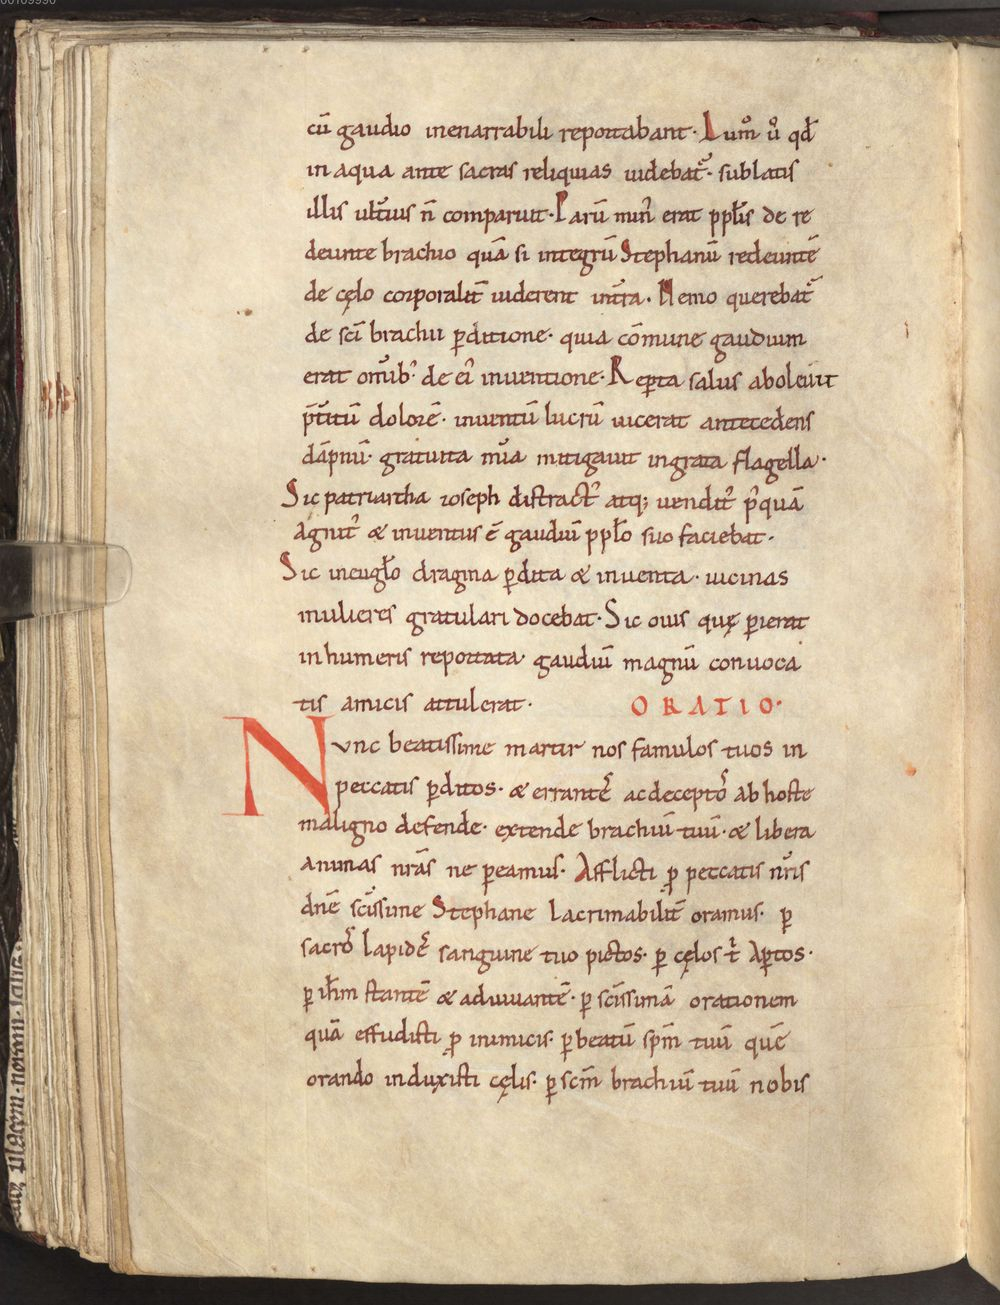 00109990
cū gaudio inenarrabili reportabant· Lum̄ ů qd̄
in aqua ante sacras reliquias uidebat᷑· sublatis
illis ult̄ius n̄ comparuit· Parū min᷒ erat ppl̄is de re
deunte brachio quā si integrū Stephanū redeuntē
de cęlo corporalit̄ uiderent int̄ra· Nemo querebat᷑
de sc̄i brachii ꝑditione· quia cōmune gaudium
erat om̄ib᷒ de ei᷒ inuentione· Reꝑta salus aboleuit
p̄t̄itū dolorē· inuentū lucrū uicerat antecedens
dāpnū· gratuita mn̄a mitigauit ingrata flagella·
Sic patriarcha ioseph distract᷒ atq; uendit᷒ p᷒quā
agnit᷒ & inuentus ē gaudiū ppl̄o suo faciebat·
Sic in eugl̄o dragma ꝑdita & inuenta· uicinas
mulieres gratulari docebat· Sic ouis quę ꝑierat
in humeris reportata· gaudiū magnū conuoca
tis amicis attulerat· ORATIO·
Nunc beatissime martir nos famulos tuos in
peccatis ꝑditos· & errantes̄ ac deceptos̄ ab hoste
maligno defende· extende brachiū tuū· & libera
animas nr̄as ne ꝑeamus· Afflicti ꝓ peccatis nr̄is
dn̄e sc̄issime Stephane lacrimabilit̄ oramus· ꝑ
sacros̄ lapides̄ sanguine tuo pictos· ꝑ cęlos t᷒ aꝑtos·
ꝑ ih̄m stantē & adiuuantē· ꝑ sc̄issimā orationem
quā effudisti ꝓ inimicis· ꝑ beatū sp̄m tuū quē
orando induxisti cęlis· ꝑ sc̄m brachiū tuū nobis